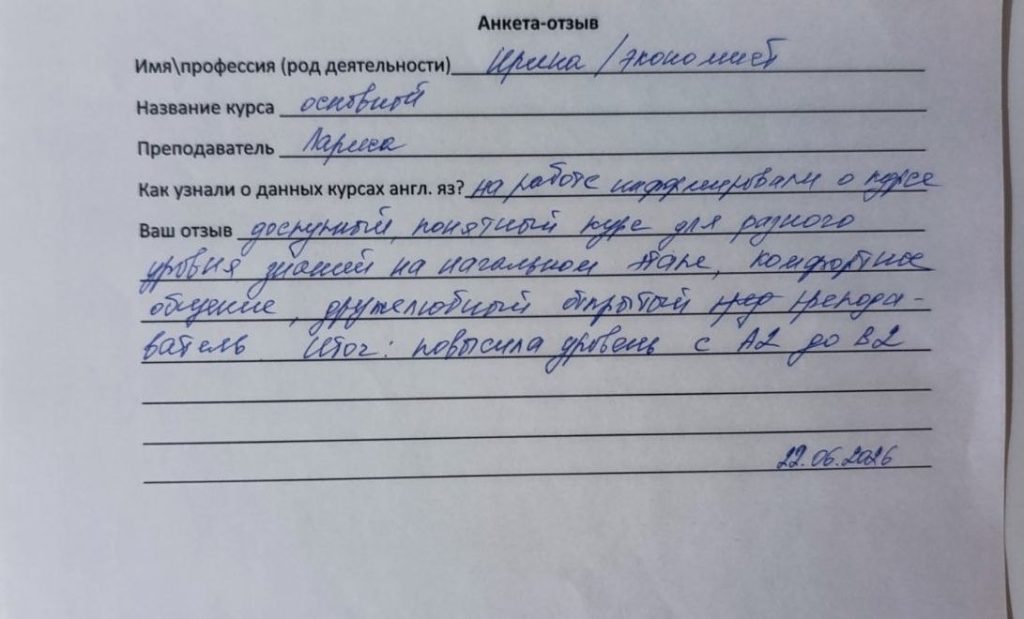 Анкета-отзыв
Имя\профессия (род деятельности) Ирина / экономист
Название курса основной
Преподаватель Лариса
Как узнали о данных курсах англ. яз? на работе информировали о курсе
Ваш отзыв доступный, понятный курс для разного
уровня знаний на начальном этапе, комфортное
общение, дружелюбный открытый препода-
ватель Итог: повысила уровень с А2 до В2
22.06.2026